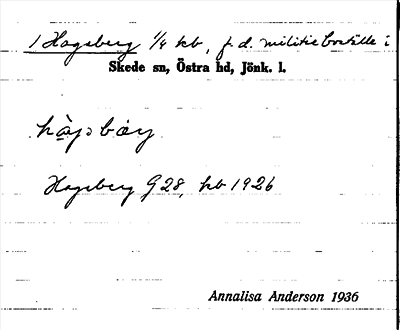 1 Hagsberg 1/4 kb, f.d. militieboställe i
Skede sn, Östra hd, Jönk. l.
Hagsberg G28, kb 1926
Annalisa Anderson 1936